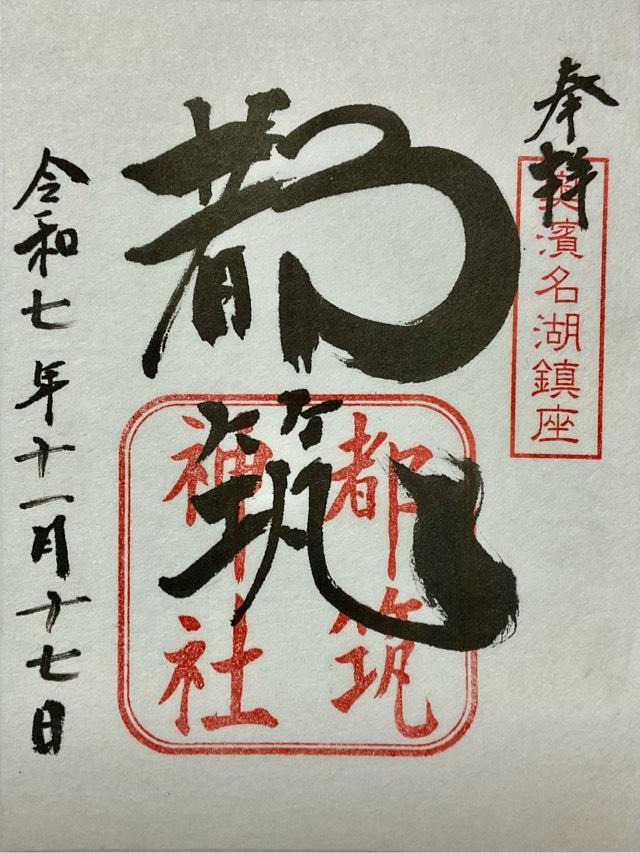 奉拝
奥濱名湖鎮座
都筑
都筑
神社
令和七年十一月十七日